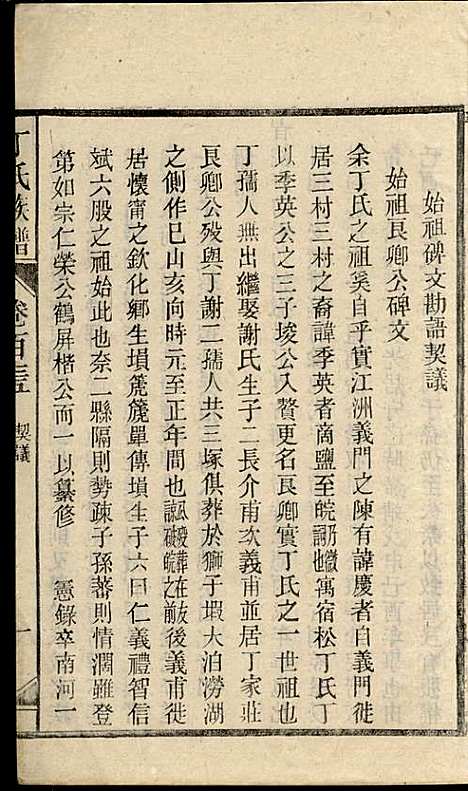 始祖碑文勘語契議
始祖良卿公碑文
余丁氏之祖奚自乎實江洲義門之陳有諱慶者自義門徙
居三村三村之裔諱季英者商鹽至皖礽僦寓宿松丁氏丁
以季英公之三子堎公入贅更名良卿實丁氏之一世祖也
丁孺人無出繼娶謝氏生子二長介甫次義甫並居丁家莊
良卿公歿與丁謝二孺人共三塚俱葬於獅子垻大泊澇湖
之側作巳山亥向時元至正年間也在前後義甫徙
居懷甯之欽化鄉生塤篪篪單傳塤生子六曰仁義禮智信
斌六股之祖始此也奈二縣隔則勢疎子孫蕃則情濶雖登
第如宗仁榮公鶴屏楷公而一以纂修 憲錄卒南河一
丁氏族譜
卷首
契議
一